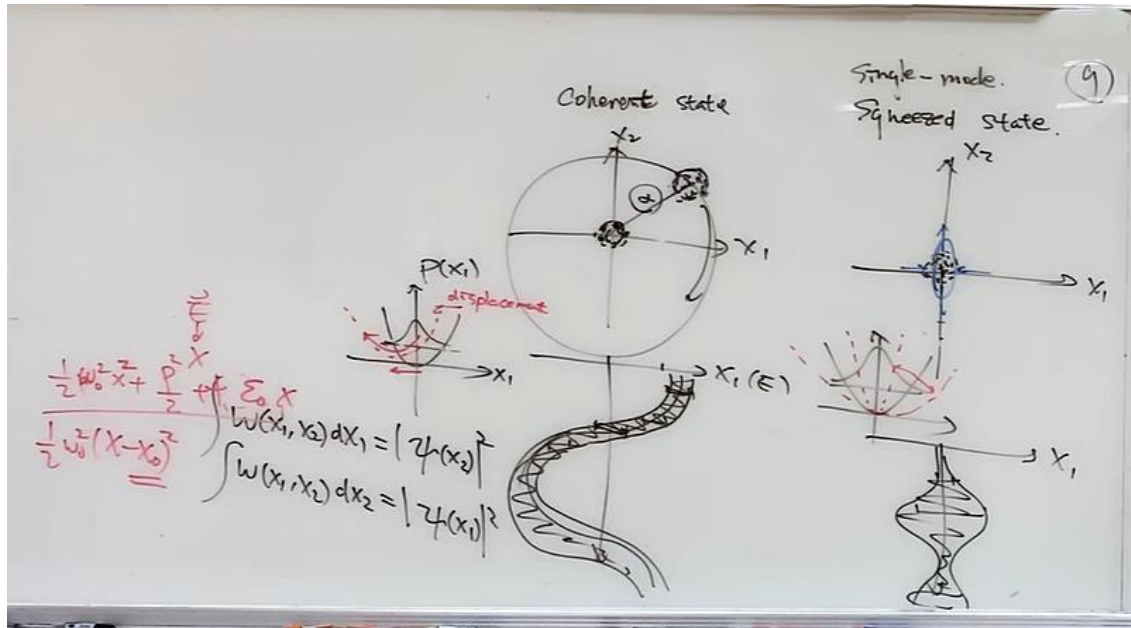 Coherent state
Single-mode.
Squeezed state.
9
X₂
α
X₁
X₂
X₁
P(x₁)
displacement
X₁
X₁(E)
X₁
X
½ω₀²x² + p²/2 + ε₀x
½ω₀²(x-x₀)²
∫W(x₁,x₂)dx₁ = |ψ(x₂)|²
∫W(x₁,x₂)dx₂ = |ψ(x₁)|²